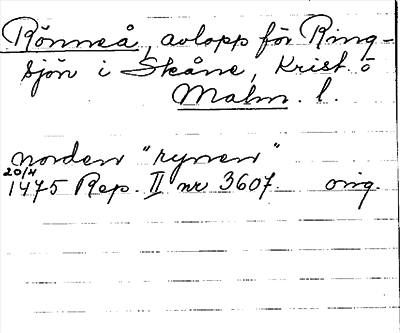 Rönneå, avlopp för Ring-
sjön i Skåne, Krist. o
Malm. l.
norden "rynen"
20/4
1475 Rep. II nr 3607. orig.